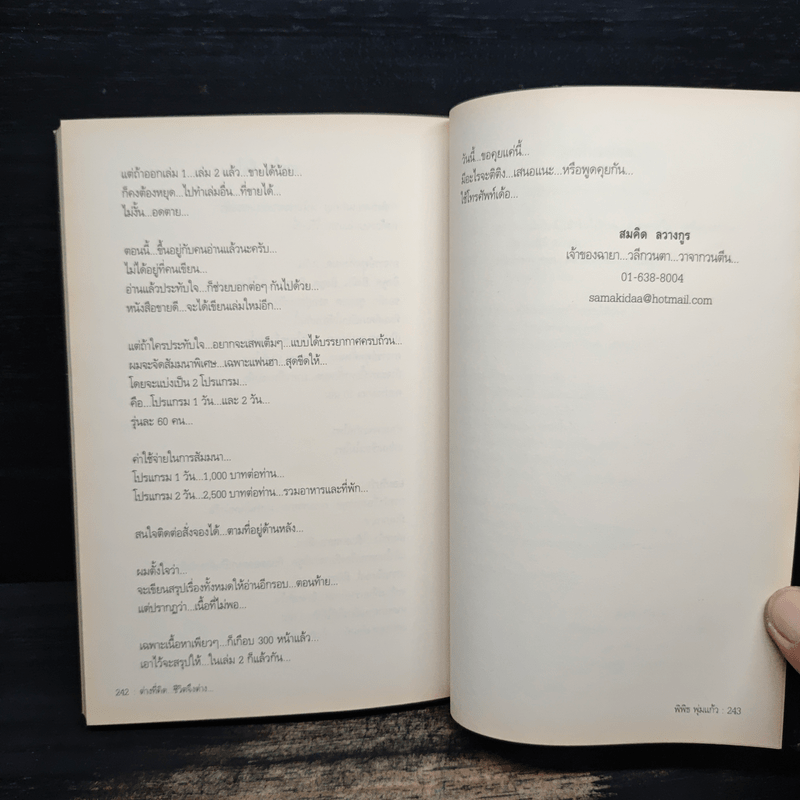 แต่ถ้าออกเล่ม 1...เล่ม 2 แล้ว...ขายได้น้อย...
ก็คงต้องหยุด...ไปทำเล่มอื่น...ที่ขายได้...
ไม่งั้น...อดตาย...
ตอนนี้...ขึ้นอยู่กับคนอ่านแล้วนะครับ...
ไม่ได้อยู่ที่คนเขียน...
อ่านแล้วประทับใจ...ก็ช่วยบอกต่อๆ กันไปด้วย...
หนังสือขายดี...จะได้เขียนเล่มใหม่อีก...
แต่ถ้าใครประทับใจ...อยากจะเสพเต็มๆ...แบบได้บรรยากาศครบถ้วน...
ผมจะจัดสัมมนาพิเศษ...เฉพาะแฟนฮา...สุดขีดให้...
โดยจะแบ่งเป็น 2 โปรแกรม...
คือ...โปรแกรม 1 วัน...และ 2 วัน...
รุ่นละ 60 คน...
ค่าใช้จ่ายในการสัมมนา...
โปรแกรม 1 วัน...1,000 บาทต่อท่าน...
โปรแกรม 2 วัน...2,500 บาทต่อท่าน...รวมอาหารและที่พัก...
สนใจติดต่อสั่งจองได้...ตามที่อยู่ด้านหลัง...
ผมตั้งใจว่า...
จะเขียนสรุปเรื่องทั้งหมดให้อ่านอีกรอบ...ตอนท้าย...
แต่ปรากฏว่า...เนื้อที่ไม่พอ...
เฉพาะเนื้อหาเพียวๆ...ก็เกือบ 300 หน้าแล้ว...
เอาไว้จะสรุปให้...ในเล่ม 2 ก็แล้วกัน...
242 : ต่างที่คิด...ชีวิตจึงต่าง...
วันนี้...ขอคุยแค่นี้...
มีอะไรจะติติง...เสนอแนะ...หรือพูดคุยกัน...
ใช้โทรศัพท์เด้อ...
สมคิด ลวางกูร
เจ้าของฉายา...วลีกวนตา...วาจากวนตีน...
01-638-8004
samakidaa@hotmail.com
พิพิธ พุ่มแก้ว : 243